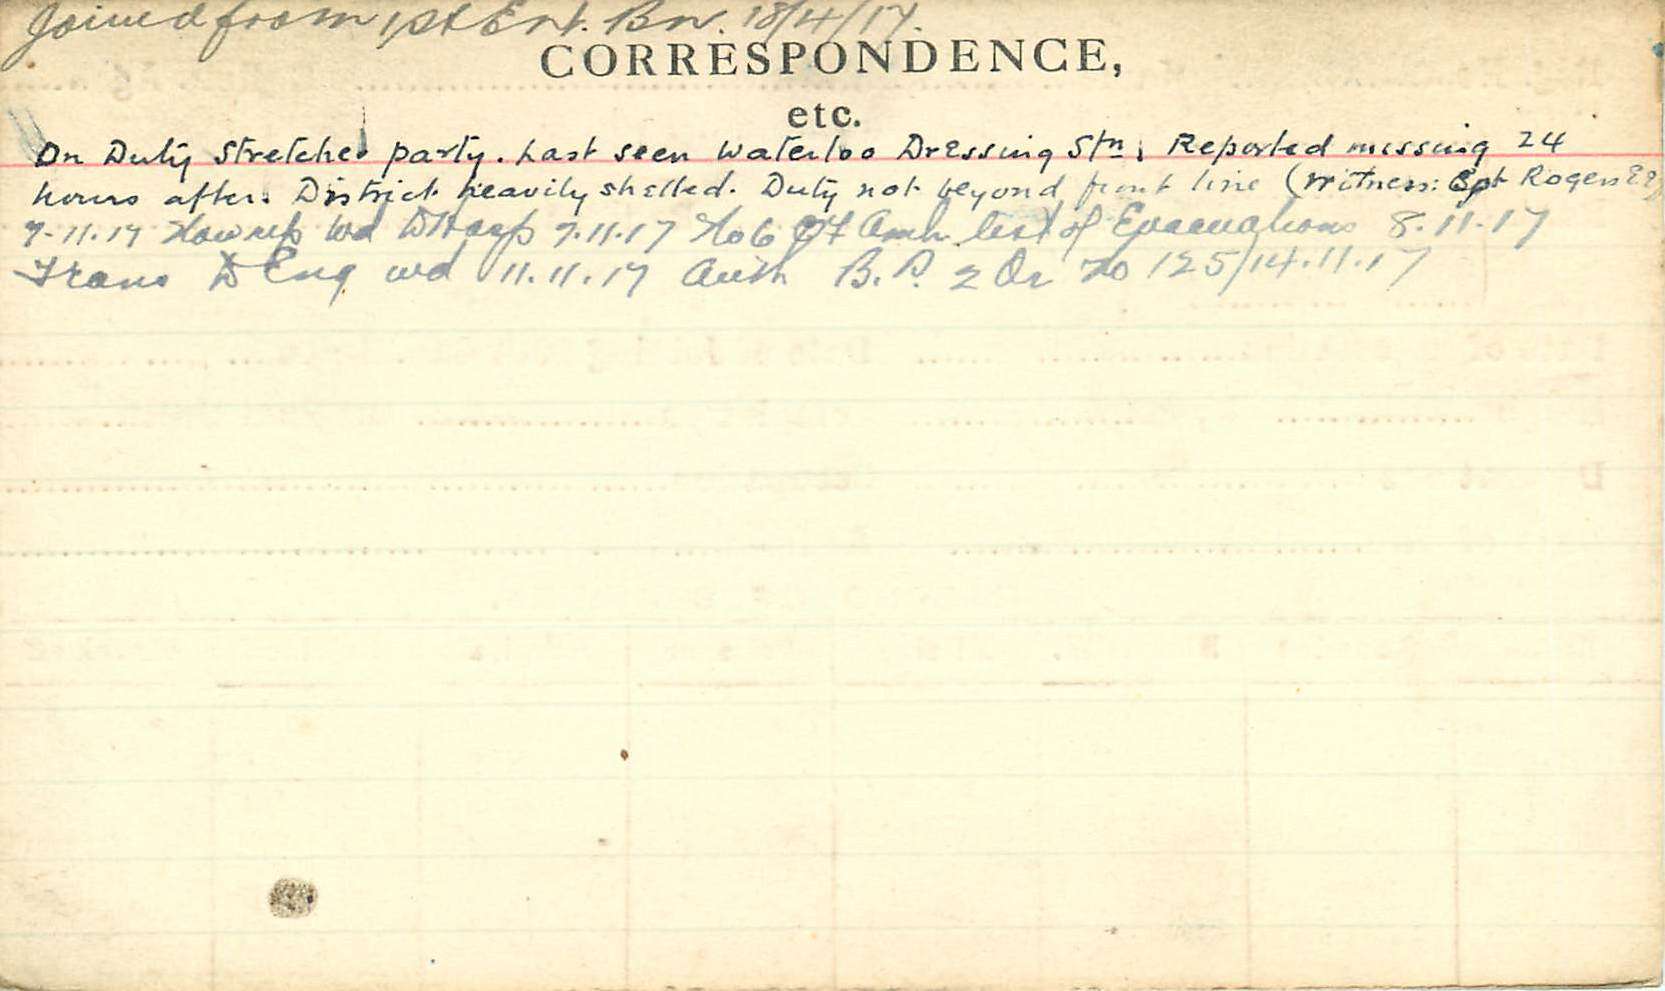 Joined from 1st Ent. Bn. 18/4/17.
CORRESPONDENCE,
etc.
On Duty Stretcher party. Last seen Waterloo Dressing Stn. Reported missing 24
hours after. District heavily shelled. Duty not beyond front line (Witness: Cpt Rogers
7.11.17 Now rep wd to Hosp 7.11.17 No 6 Amb list of Evacuations 8.11.17
Trans to Eng wd 11.11.17 Auth B.D. 2 Or No 125/14.11.17